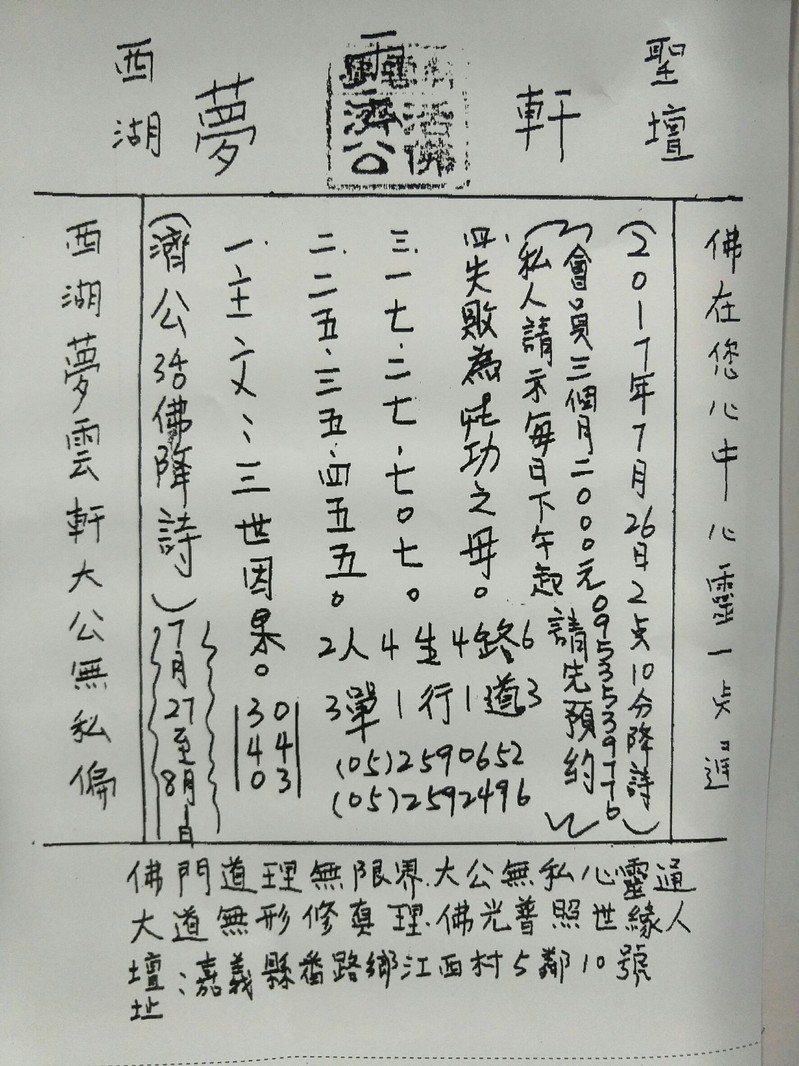 聖壇 軒 雲 夢 西湖
濟公 活佛
佛在您心中心靈一点通
(2017年7月26日2点10分降詩)
會員三個月二000元0953539776
私人請示每日下午起請先預約
四、失敗為成功之母。
三、一七、二七、七0七。
二、二五、三五、四五五。
一、主文:三世因果。
(濟公活佛降詩)7月27至8月1日
2人4生4路6
3單1行1道3
(05)2590652
(05)2592496
30
44
03
西湖夢雲軒大公無私偏
佛門道理無限界.大公無私心靈通
大道無形修真理.佛光普照世緣人
壇址:嘉義縣番路鄉江西村5鄰10號